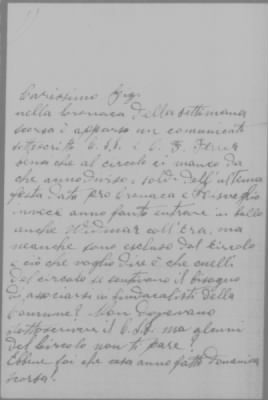 Carissimo Gigi
nella Cronaca della settimana
scorsa è apparso un comunicato
sottoscritto C.S.S. i C. F. Ferrer
sena che al circolo ci manco da
che anno diviso i soldi dell'ultema
festa data pro Cronaca e Risveglio
invece anno fanto entrare in ballo
anche coll'era, ma
neanche sono escluso dal Circolo
e ciò che voglio dire è che quelli
del circolo si sentivano il bisogno
di associarsi ai fundacalisti della
Comune? Non Dopevano
sottoscriversi il C.S.S. ma alcuni
del Circolo non ti pare?
Ebbene fai che cosa anno fatto Domenica
scorsa!